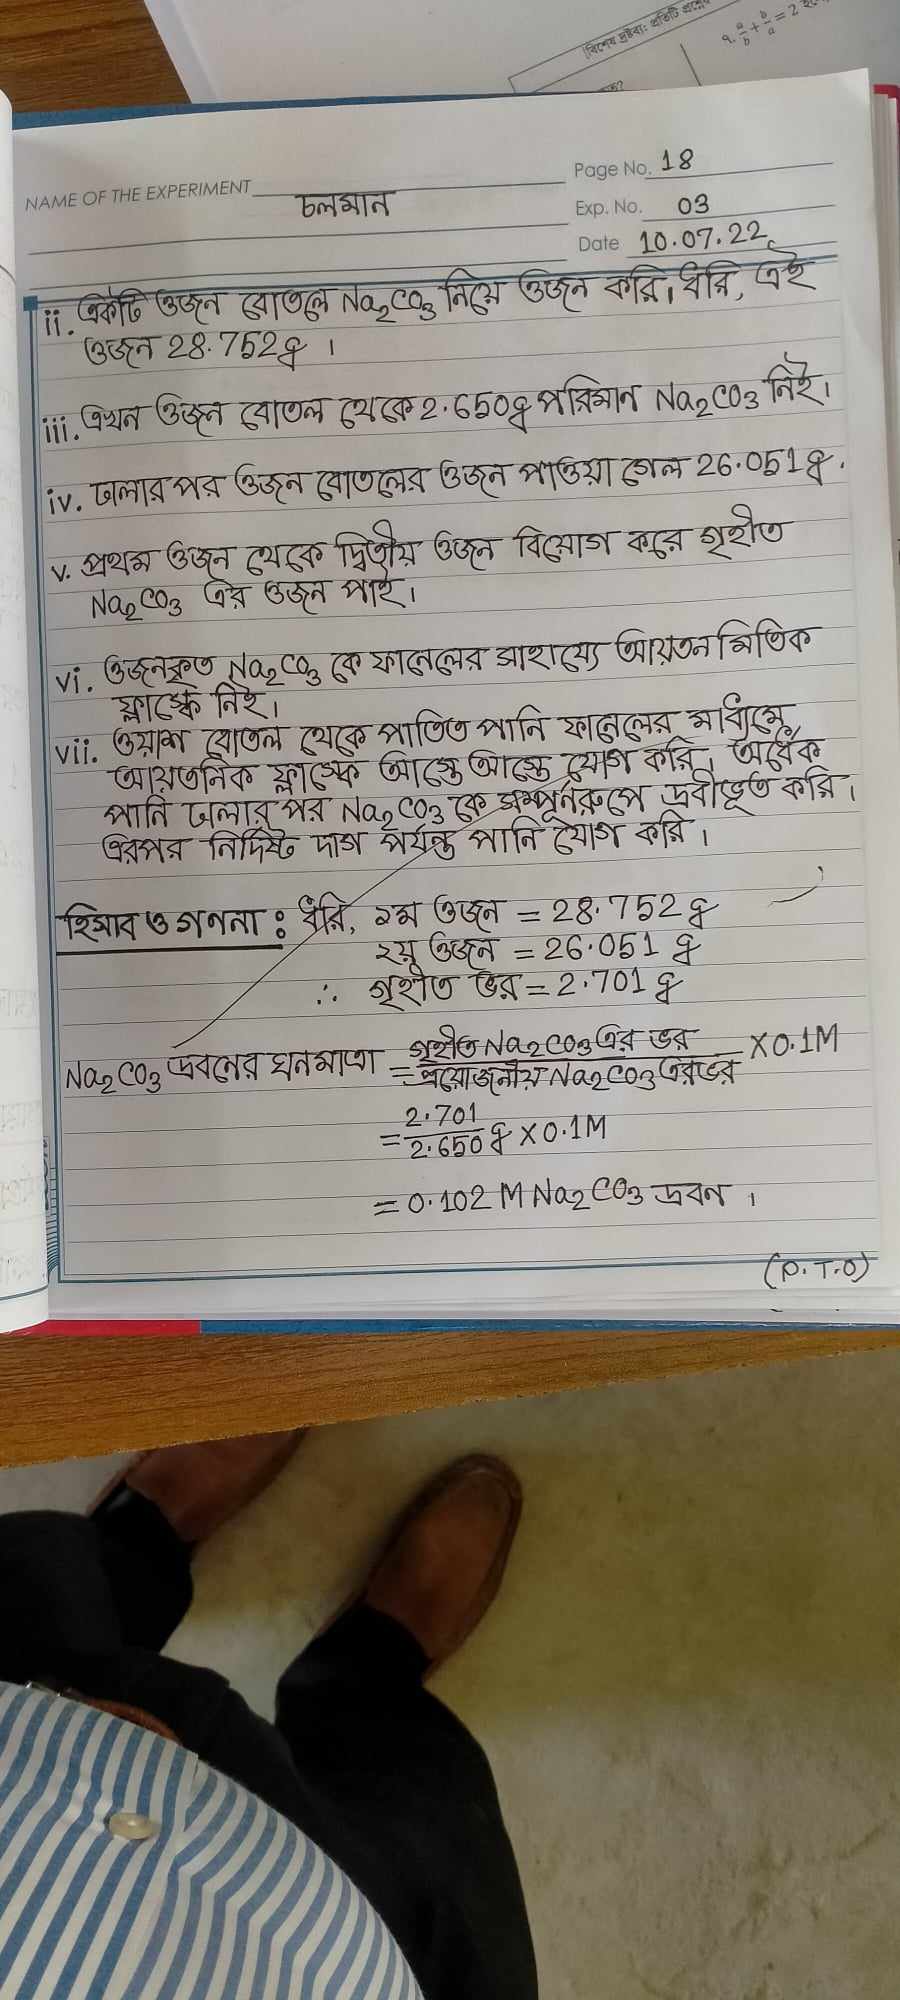 (বিশেষ দ্রষ্টব্য: প্রতিটি প্রশ্নের
৭. a/b + b/a = 2
Page No. 18
NAME OF THE EXPERIMENT
চলমান
Exp. No. 03
Date 10.07.22
ii. একটি ওজন বোতলে Na₂CO₃ নিয়ে ওজন করি। ধরি, এই
ওজন 28.752g ।
iii. এখন ওজন বোতল থেকে 2.650g পরিমান Na₂CO₃ নিই।
iv. ঢালার পর ওজন বোতলের ওজন পাওয়া গেল 26.051g.
v. প্রথম ওজন থেকে দ্বিতীয় ওজন বিয়োগ করে গৃহীত
Na₂CO₃ এর ওজন পাই।
vi. ওজনকৃত Na₂CO₃ কে ফানেলের সাহায্যে আয়তনমিতিক
ফ্লাস্কে নিই।
vii. ওয়াশ বোতল থেকে পাতিত পানি ফানেলের মাধ্যিমে
আয়তনিক ফ্লাস্কে আস্তে আস্তে যোগ করি। অর্ধেক
পানি ঢালার পর Na₂CO₃ কে সম্পূর্নরুপে দ্রবীভূত করি।
এরপর নির্দিষ্ট দাগ পর্যন্ত পানি যোগ করি।
হিসাব ও গণনা: ধরি, ১ম ওজন = 28.752 g
২য় ওজন = 26.051 g
∴ গৃহীত ভর = 2.701 g
Na₂CO₃ দ্রবনের ঘনমাত্রা = গৃহীত Na₂CO₃ এর ভর / প্রয়োজনীয় Na₂CO₃ এর ভর × 0.1M
= 2.701 / 2.650 g × 0.1M
= 0.102 M Na₂CO₃ দ্রবণ ।
(P.T.O)